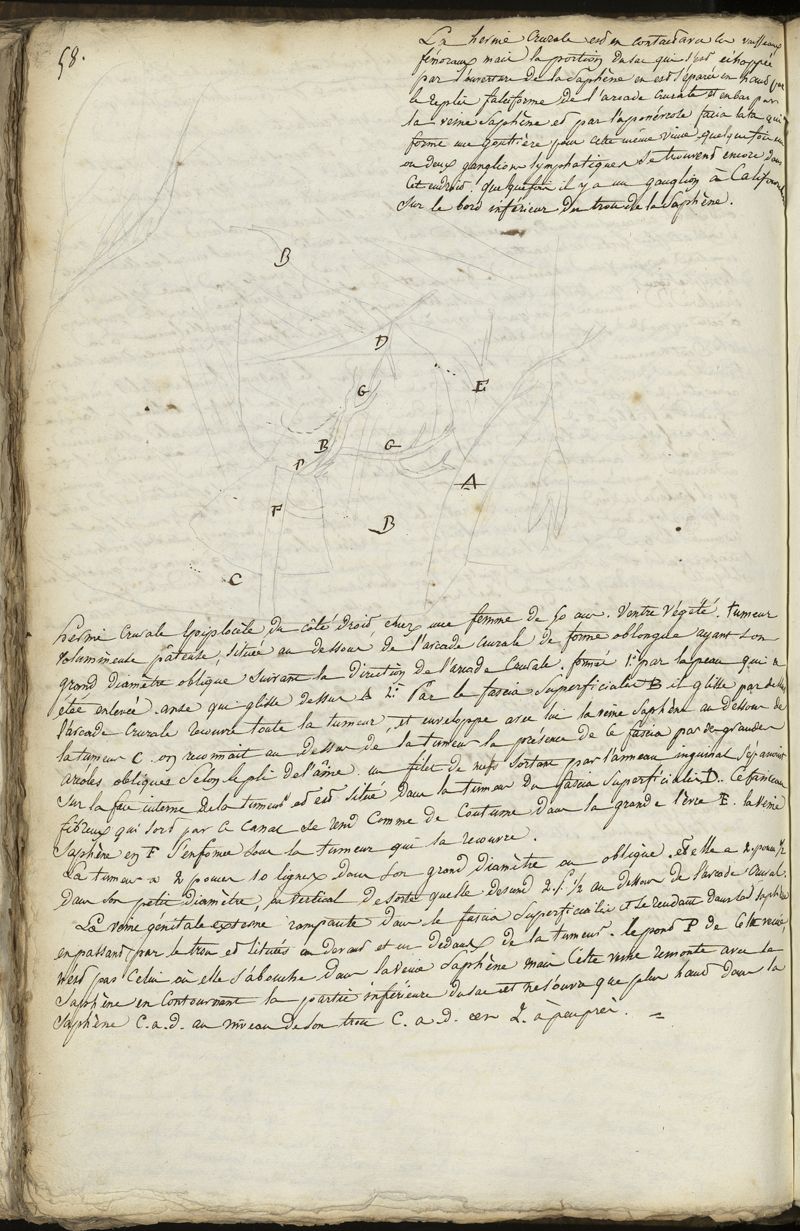 58.
La hernie crurale est en contact avec les vaisseaux
fémoraux mais la portion du sac qui s'est échappée
par l'ouverture de la saphène en est séparée en haut par
le repli falciforme de l'arcade crurale et en bas par
la veine saphène et par l'aponévrose fascia lata qui
forme une goutière pour cette même veine, quelquefois un
ou deux ganglions lymphatiques se trouvent encore dans
cet endroit. quelquefois il y a un ganglion à
sur le bord inférieur du trou de la saphène.
B
D
G
E
B
G
P
A
F
B
C
hernie crurale épiplocèle du côté droit chez une femme de 50 ans. Ventre végété. tumeur
volumineuse pâteuse, située au dessous de l'arcade crurale de forme oblongue ayant son
grand diamètre oblique suivant la direction de l'arcade crurale. formée 1.° par la peau qui a
étée enlevée. anse qui glisse dessus A 2.° Par le fascia superficialis B il glisse par dessus
l'arcade crurale recouvre toute la tumeur, et enveloppe avec lui la veine saphène au dessous de
la tumeur C. on reconnait au dessus de la tumeur la présence de ce fascia par de grandes
aréoles obliques selon le pli de l'aîne. un filet de nerf sortant par l'anneau inguinal s'épanouit
sur la face interne de la tumeur et est situé dans la tumeur du fascia superficialis D. Ce faisceau
fibreux qui sort par ce canal se rend comme de coutume dans la grande lèvre E. la veine
saphène en F s'enfonce sous la tumeur qui la recouvre.
La tumeur a 2 pouces 10 lignes dans son grand diamètre ou oblique. et elle a 2 pouces 1/2
dans son petit diamètre, ou vertical de sorte quelle descend 2. p. 1/2 au dessous de l'arcade crurale.
La veine génitale externe rampante dans le fascia superficialis et se rendant dans la saphène
en passant par le trou est située en devant et en dedans de la tumeur. le P de cette veine
n'est pas celui où elle s'abouche dans la veine saphène mais cette veine remonte avec la
saphène en contournant la partie inférieure du sac et ne s'ouvre que plus haut dans la
saphène C.a.d. au niveau de son trou C.a.d. en 2. à peu près. =